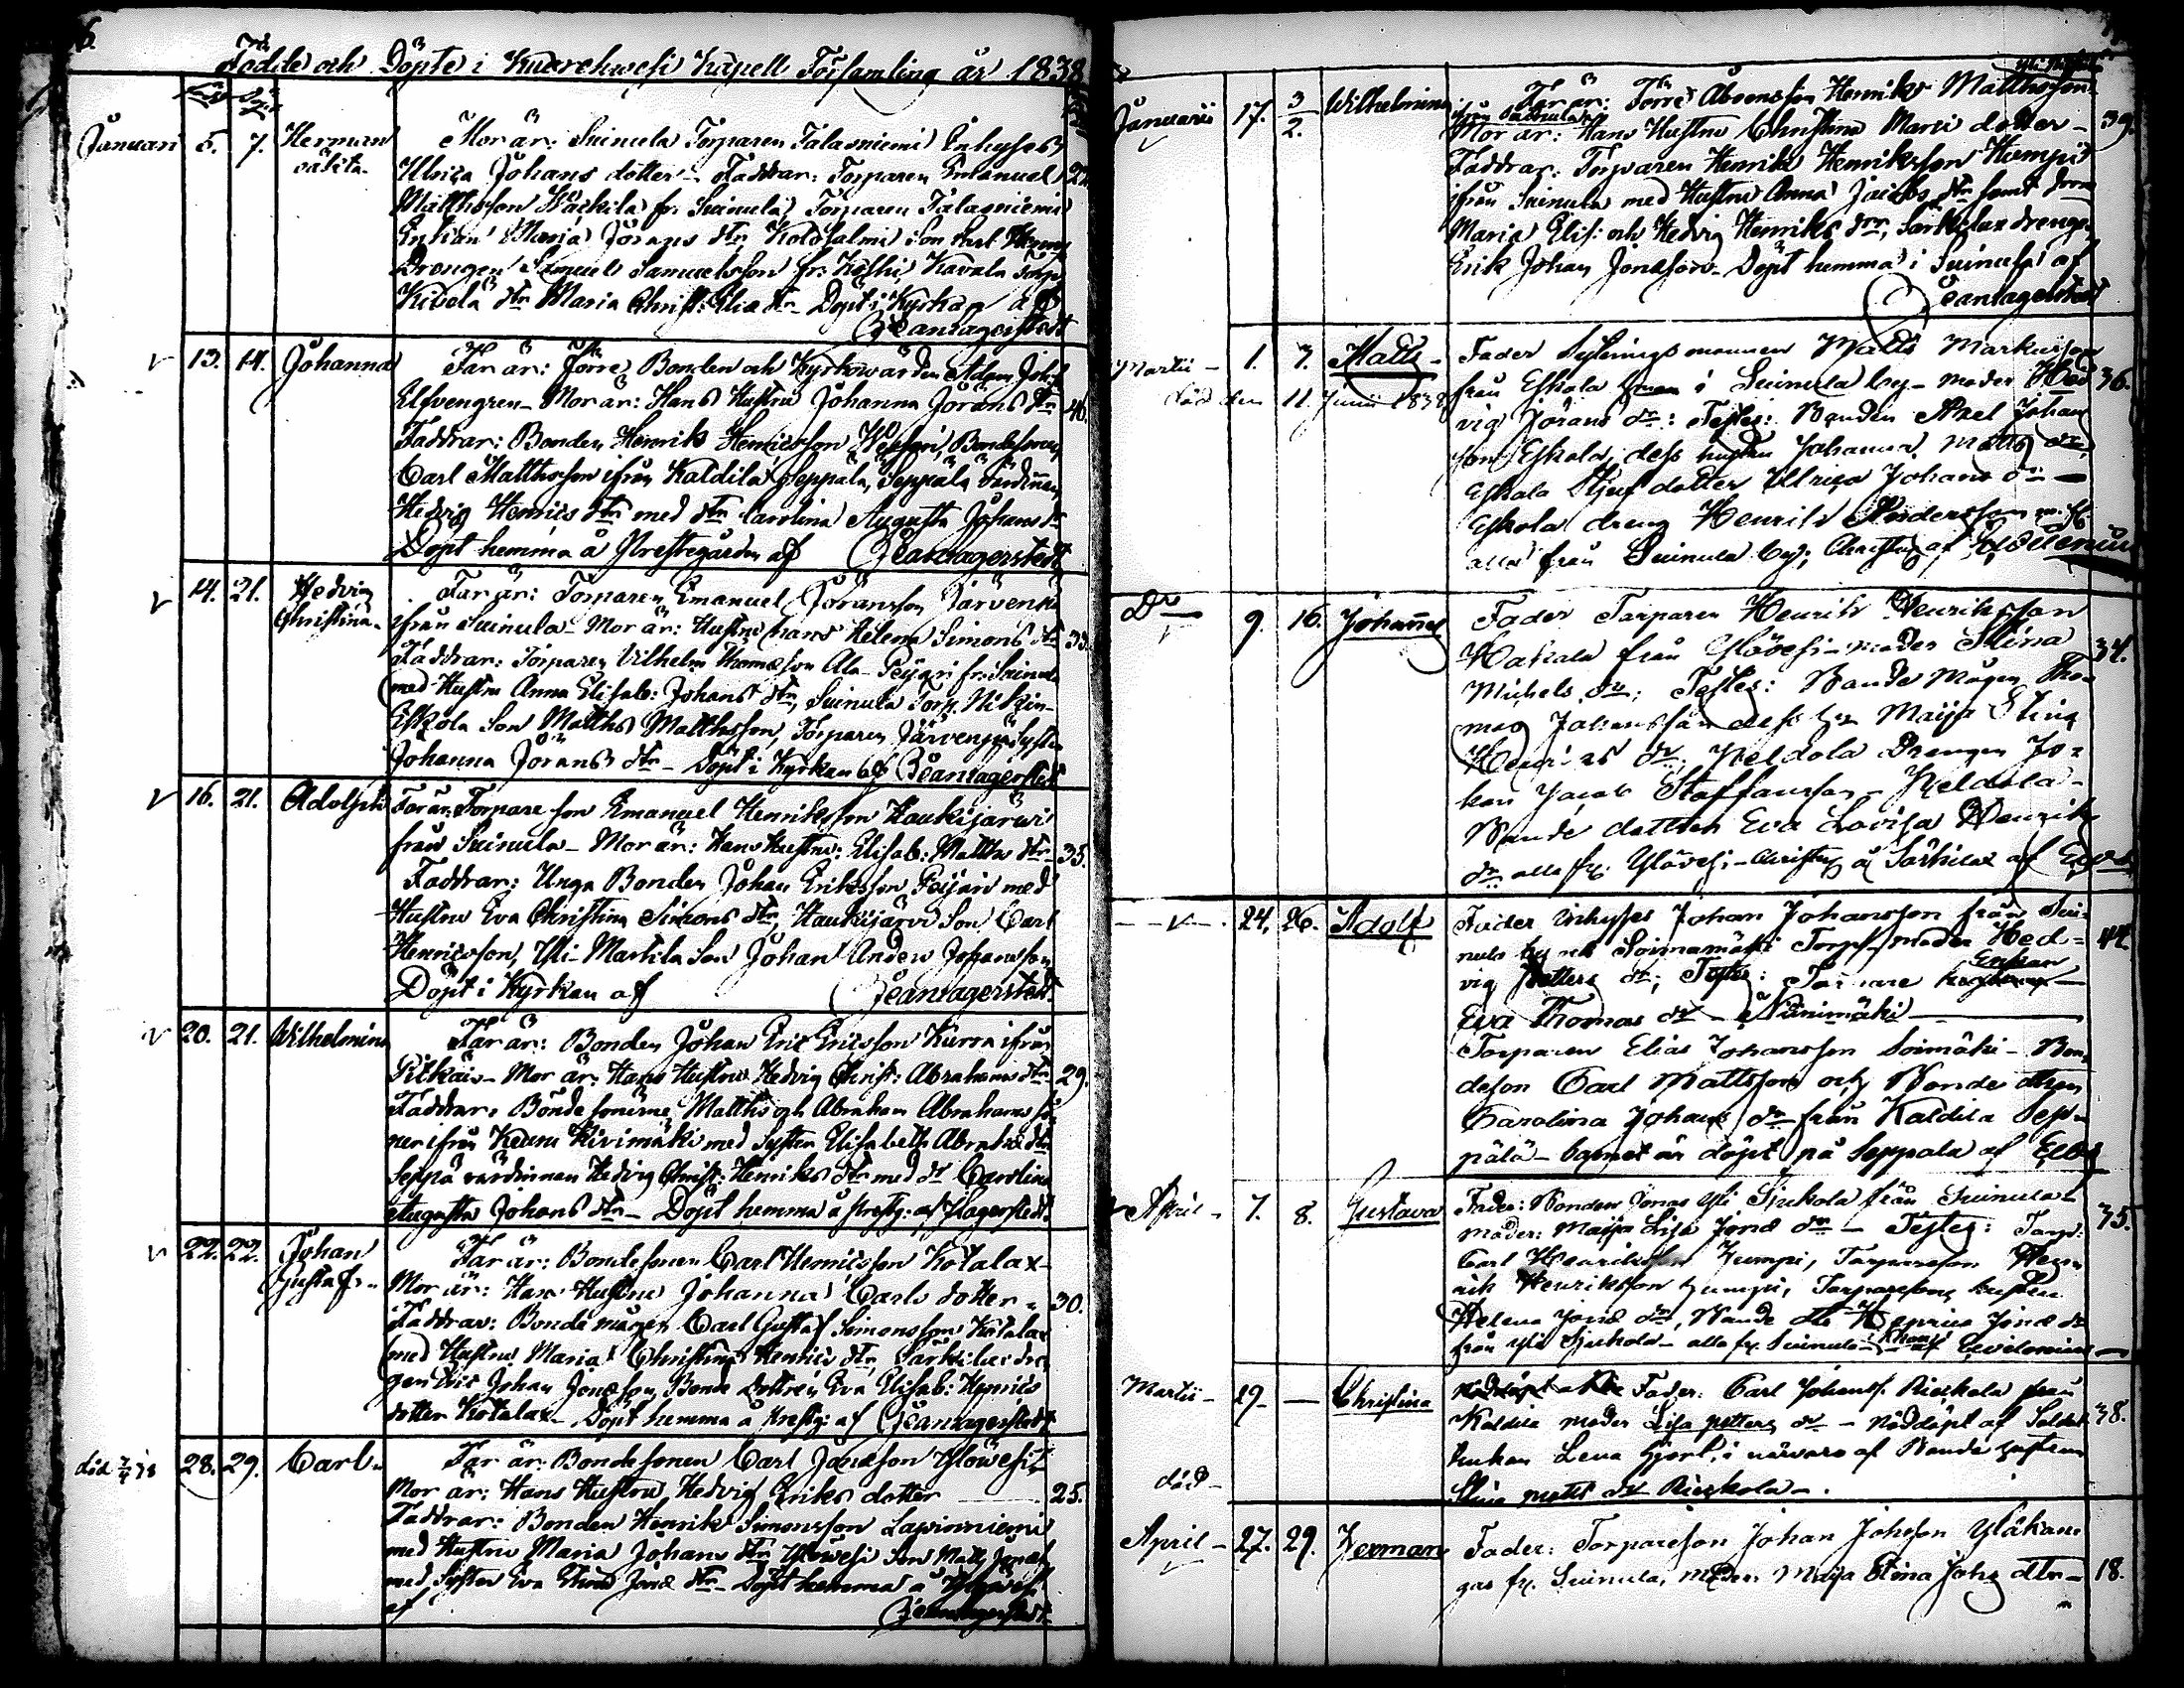 6.
Födde och Döpte i Kuorehwesi Kapell Församling år 1838
Januari 5. 7. Herman oäkta. Mor är: Suinula Torparen Talasniemi Inhyses
Ulrica Johans dotter - Faddrar: Torparen Emanuel
Matthsson Warkila fr. Suinula, Torparen Talasniemi
Enkan Maria Jörans dtr Koldsalmi son Karl
Drengen Samuel Samuelsson fr. Koski, Kavala torp
Kivelä dtr Maria Christ: Elia dtr - Döpt i Kyrkan af
Jean Lagerstedt
13. 14. Johanna Far är: Förre Bonden och Kyrkowärden Adam Joh:
Elfvengren - Mor är: Hans Hustru Johanna Jörans dtr 40.
Faddrar: Bonden Henrik Henricsson, Bondesonen
Carl Matthsson ifrån Kaldila Seppälä, Seppälä värdinnan
Hedvig Henrics dtr med dtr Carolina Augusta Johans dr
Döpt hemma å Prestegården af Jean Lagerstedt
14. 21. Hedvig Christina. Far är: Torparen Emanuel Göransson Järvenpä
ifrån Suinula - Mor är: Hustru hans Helena Simons dtr 33.
Faddrar: Torparen Vilhelm Thomasson Ala-Peijari fr. Suinula
med Hustru Anna Elisab: Johans dtr, Suinula Torp. Nikkin-
Eskola Son Matths Matthsson, Torparen Järvenpä Syster
Johanna Jörans dtr - Döpt i Kyrkan af Jean Lagerstedt
16. 21. Adolph Far är: Torpare son Emanuel Henriksson Haukijärwi
från Suinula - Mor är: Hans Hustru: Elisab: Matths dtr 35.
Faddrar: Unga Bonden Johan Eriksson Peijari med
Hustru Eva Christina Simons dtr, Haukijärvi Son Carl
Henricsson, Yli-Martila Son Johan Anders Johansson
Döpt i Kyrkan af Jean Lagerstedt.
20. 21. Wilhelmina Far är: Bonden Johan Eric Ericsson Kurra ifrån
Pitkäis - Mor är: Hans Hustru Hedvig Christ: Abrahams dtr 29.
Faddrar: Bonde sönerne Matths och Abraham Abrahams sö-
ner ifrån Keuru Kivimäki med Syster Elisabeth Abrahs dtr
Seppä värdinnan Hedvig Christ: Henriks dtr med dr Carolina
Augusta Johans dtr - Döpt hemma å prestg: af Lagerstedt.
22. 22. Johan Gustaf. Far är: Bondesonen Carl Henricsson Kotalax -
Mor är: Hans Hustru Johanna Carls dotter - 30.
Faddrar: Bonde mågen Carl Gustaf Simonsson Kotalax
med Hustru Maria Christina Henrics dtr, Särkilax dren-
gen Eric Johan Jonasson, Bonde Dottren Eva Elisab: Henrics
dotter Kotalax - Döpt hemma å Prestg: af Jean Lagerstedt
död 28. 29. Carl. Far är: Bondesonen Carl Jonasson Ylöwesi -
Mor är: Hans Hustru Hedvig Eriks dotter - 25.
Faddrar: Bonden Henrik Simonsson Lapinniemi
med Hustru Maria Johans dtr Ylöwesi Son Matts Jonas
med Syster Eva Stina Jonæ dtr - Döpt hemma å Ylöwesi
af Jean Lagerstedt
Januarii 17. 3/2. Wilhelmina Far är: Förre Åboensson Henriks Matthsson
ifrån Suinula
Mor är: Hans Hustru Christina Maria dotter - 39.
Faddrar: Torparen Henrik Henriksson Humpi
ifrån Suinula med Hustru Anna Jacobs dtr samt dr
Maria Elis: och Hedvig Henriks dtr, Särkilax drengen
Erik Johan Jonasson - Döpt hemma i Suinula af
Jean Lagerstedt
Martii - 1. 7. Matts - Fader Matts Markusson
död den 11. Junii 1838 från Eskola i Suinula by - moder Hed- 36.
vig Jörans dr: Testes: Bonden Axel Johans
son Eskola, dess hustru Johanna Matts dr,
Eskola dotter Ulrica Johans dr -
Eskola dreng Henrik Andersson
alla från Suinula by; Christnad af
Do 9. 16. Johannes Fader Torparen Henrik Henriksson
Hakala från Ylövesi - moder Stina 34.
Michels dr; Testes: Bonde Mågen Tho-
mas Johansson dess hu Maija Stina
Henrics dr. Keldola Drengen Jo-
han Jacob Staffansson - Keldola -
Bonde dottren Eva Lovisa Henriks
dr alla fr. Ylövesi - Christnad å Särkilax af
24. 26. Adolf Fader inhyses Johan Johansson från Sui-
nula by och Soinamäki Torp - moder Hed- 44.
vig Petters dr; Testes: Torpare Enkan
Eva Thomas dr - Niinimäki -
Torparen Elias Johansson Soimäki - Bon-
deson Carl Mattsson och Bonde dtren
Carolina Johans dr från Kaldila Sep-
pälä - barnet är döpt på Seppälä af
April - 7. 8. Gustava Fader: Bonden Jonas Yli Sirkola från Suinula 35.
moder: Maija Lisa Jonæ dr - Testes: Torp:
Carl Henriksson Humpi, Torpareson Hen-
rik Henriksson Humpi, Torparesons hustru
Helena Jonæ dr, Bonde dtr Henrica Jonæ dr
från Yli Sirkola - alla fr. Suinula -
Martii - 29. - Christina Fader: Carl Johans. Rieskola från
Kaldila moder Lisa petters dr - Nöddöpt af Soldat 38.
Enkan Lena Hjort, i närvaro af Bonde hustrun
Stina matts dr Rieskola -.
död -
April - 27. 29. Herman Fader: Torpareson Johan Johsson Yläkan-
gas fr. Suinula, Moder: Maija Stina Johs dtr - 18.